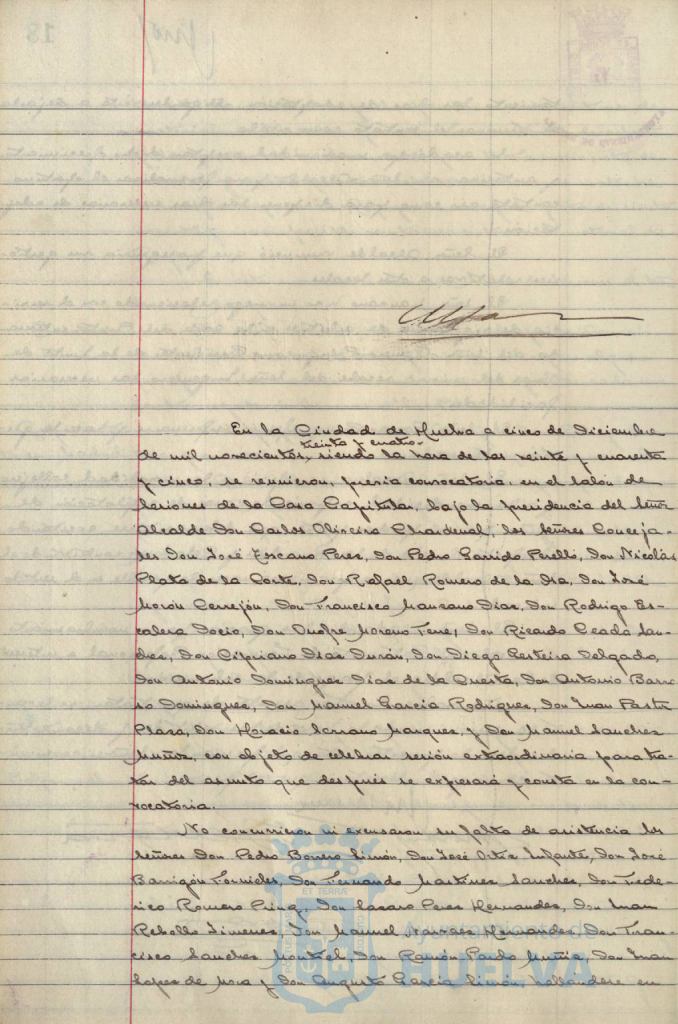 En la Ciudad de Huelva a cinco de Diciembre
treinta y cuatro
de mil novecientos, siendo la hora de las veinte y cuarenta
y cinco, se reunieron, previa convocatoria, en el Salón de
Sesiones de la Casa Capitular, bajo la presidencia del Señor
Alcalde Don Carlos Oliveira Chardenal, los Señores Conceja-
les Don José Toscano Perez, Don Pedro Garrido Perelló, Don Nicolás
Plata de la Corte, Don Rafael Romero de la Osa, Don José
Morón Cerrejón, Don Francisco Manzano Diaz, Don Rodrigo Es-
calera Docio, Don Onofre Moreno Tere, Don Ricardo Ceada San-
chez, Don Cipriano Diaz Durán, Don Diego Gesteira Delgado,
Don Antonio Dominguez Diaz de la Questa, Don Antonio Barro-
so Dominguez, Don Manuel Garcia Rodriguez, Don Juan Pastr
Plaza, Don Horacio Serrano Marquez, y Don Manuel Sanchez
Muñoz, con objeto de celebrar sesión extraordinaria para tra-
tar del asunto que después se expresará y consta en la con-
vocatoria.
No concurrieron ni excusaron su falta de asistencia los
Señores Don Pedro Borrero Limón, Don José Ortiz Infante, Don José
Barrigón Fornieles, Don Fernando Martinez Sanchez, Don Fede-
rico Romero Princ, Don Lazaro Perez Hernandez, Don Juan
Rebollo Jimenez, Don Manuel Narvaez Hernandez, Don Fran-
cisco Sanchez Montiel, Don Ramón Pardo Muñiz, Don Juan
Lopez de Mora y Don Augusto Garcia Limón, hallandose en
Ayuntamiento de
HUELVA